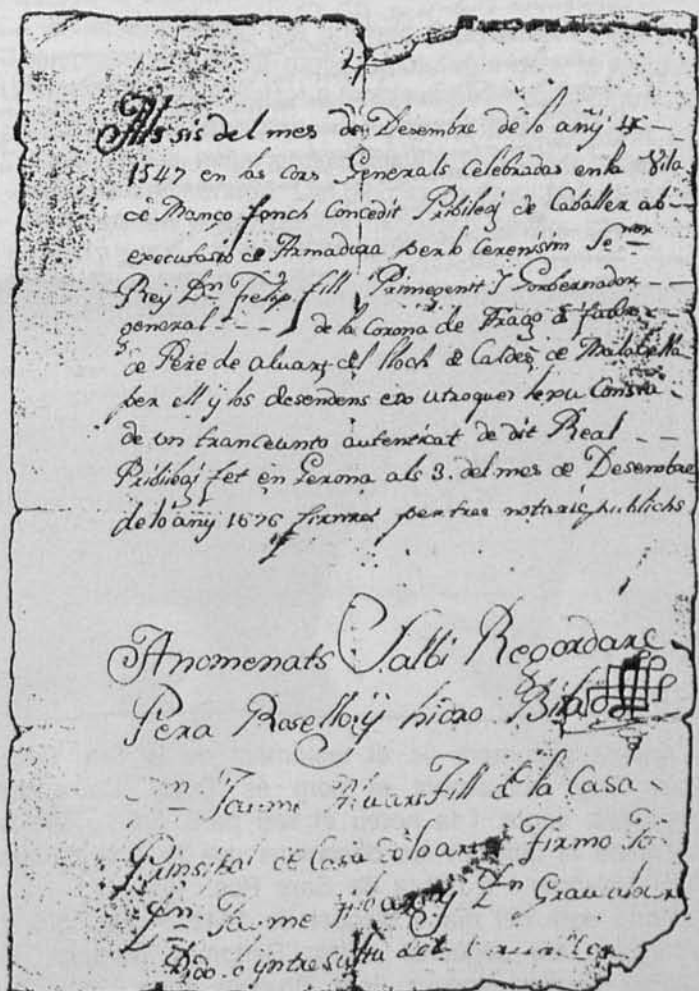 Als sis del mes de Desembre de lo añy
1547 en las Cors Generals Celebradas en la Vila
de Monço fonch Concedit Pribilegj de Caballer ab
execusasio de Armadura per lo Cerenisim Se.nor
Rey Dn Felip fill Primogenit y Gorbernador
general --- de la Corona de Arago à favor
de Pere de aluarj del lloch de Caldes de Malabella
per ell y los desendens
de un transumto autenticat de dit Real
Pribilegj fet en Gerona als 3. del mes de Desembre
de lo añy 1676 firmat per tres notaris publichs
Anomenats Salbi Regordare
Pera Rosello y hidro
Dn Jaume Aluari Fill de la Casa
Prinsipal de Casa Firmo
Dn Jaume Dn Grau